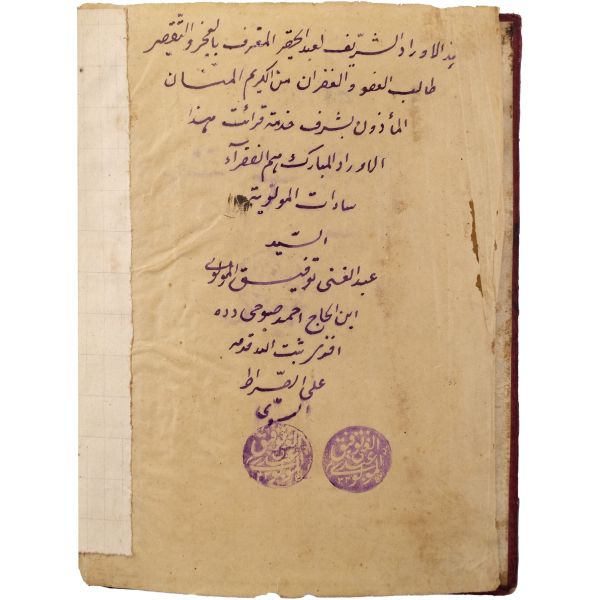 هذ الاوراد الشريف لعبد الحقير المعترف بالعجز والتقصير
طالب العفو والغفران من الكريم المنان
المأذون بشرف خدمة قرائت هذا
الاوراد المبارك هم الفقرآء
سادات المولوية
السيد
عبد الغنى توفيق المولوى
ابن الحاج احمد صبوحى دده
افندى ثبت الله قدمه
على الصراط
السوى